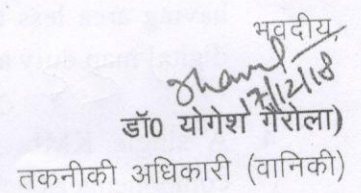 भवदीय
17/12/18
डॉ0 योगेश गैरोला)
तकनीकी अधिकारी (वानिकी)